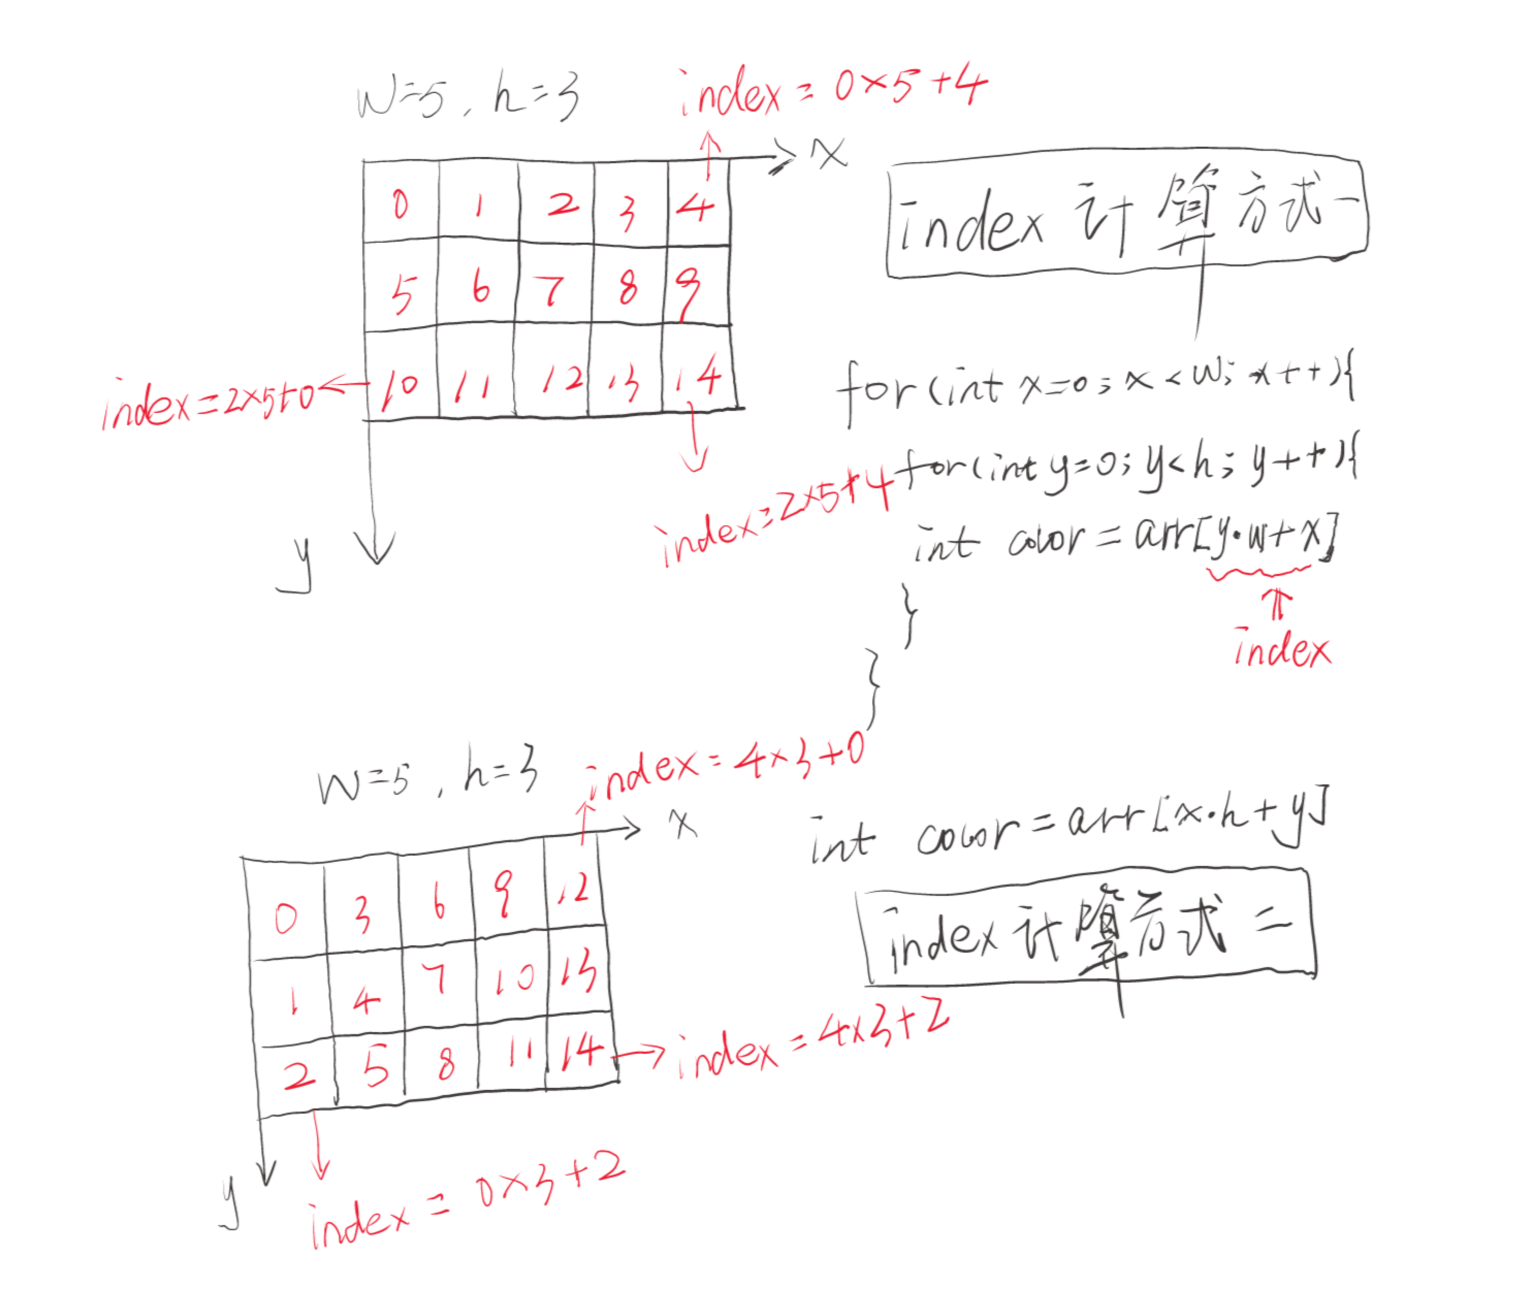 w=5, h=3
index = 0×5+4
x
0 1 2 3 4
5 6 7 8 9
10 11 12 13 14
index=2×5+0
index=2×5+4
y
index 计算方式一
for(int x=0; x<w; x++){
for(int y=0; y<h; y++){
int color = arr[y·w+x]
index
}
}
w=5, h=3
index = 4×3+0
x
0 3 6 9 12
1 4 7 10 13
2 5 8 11 14
index = 4×3+2
y
index = 0×3+2
int color = arr[x·h+y]
index 计算方式二